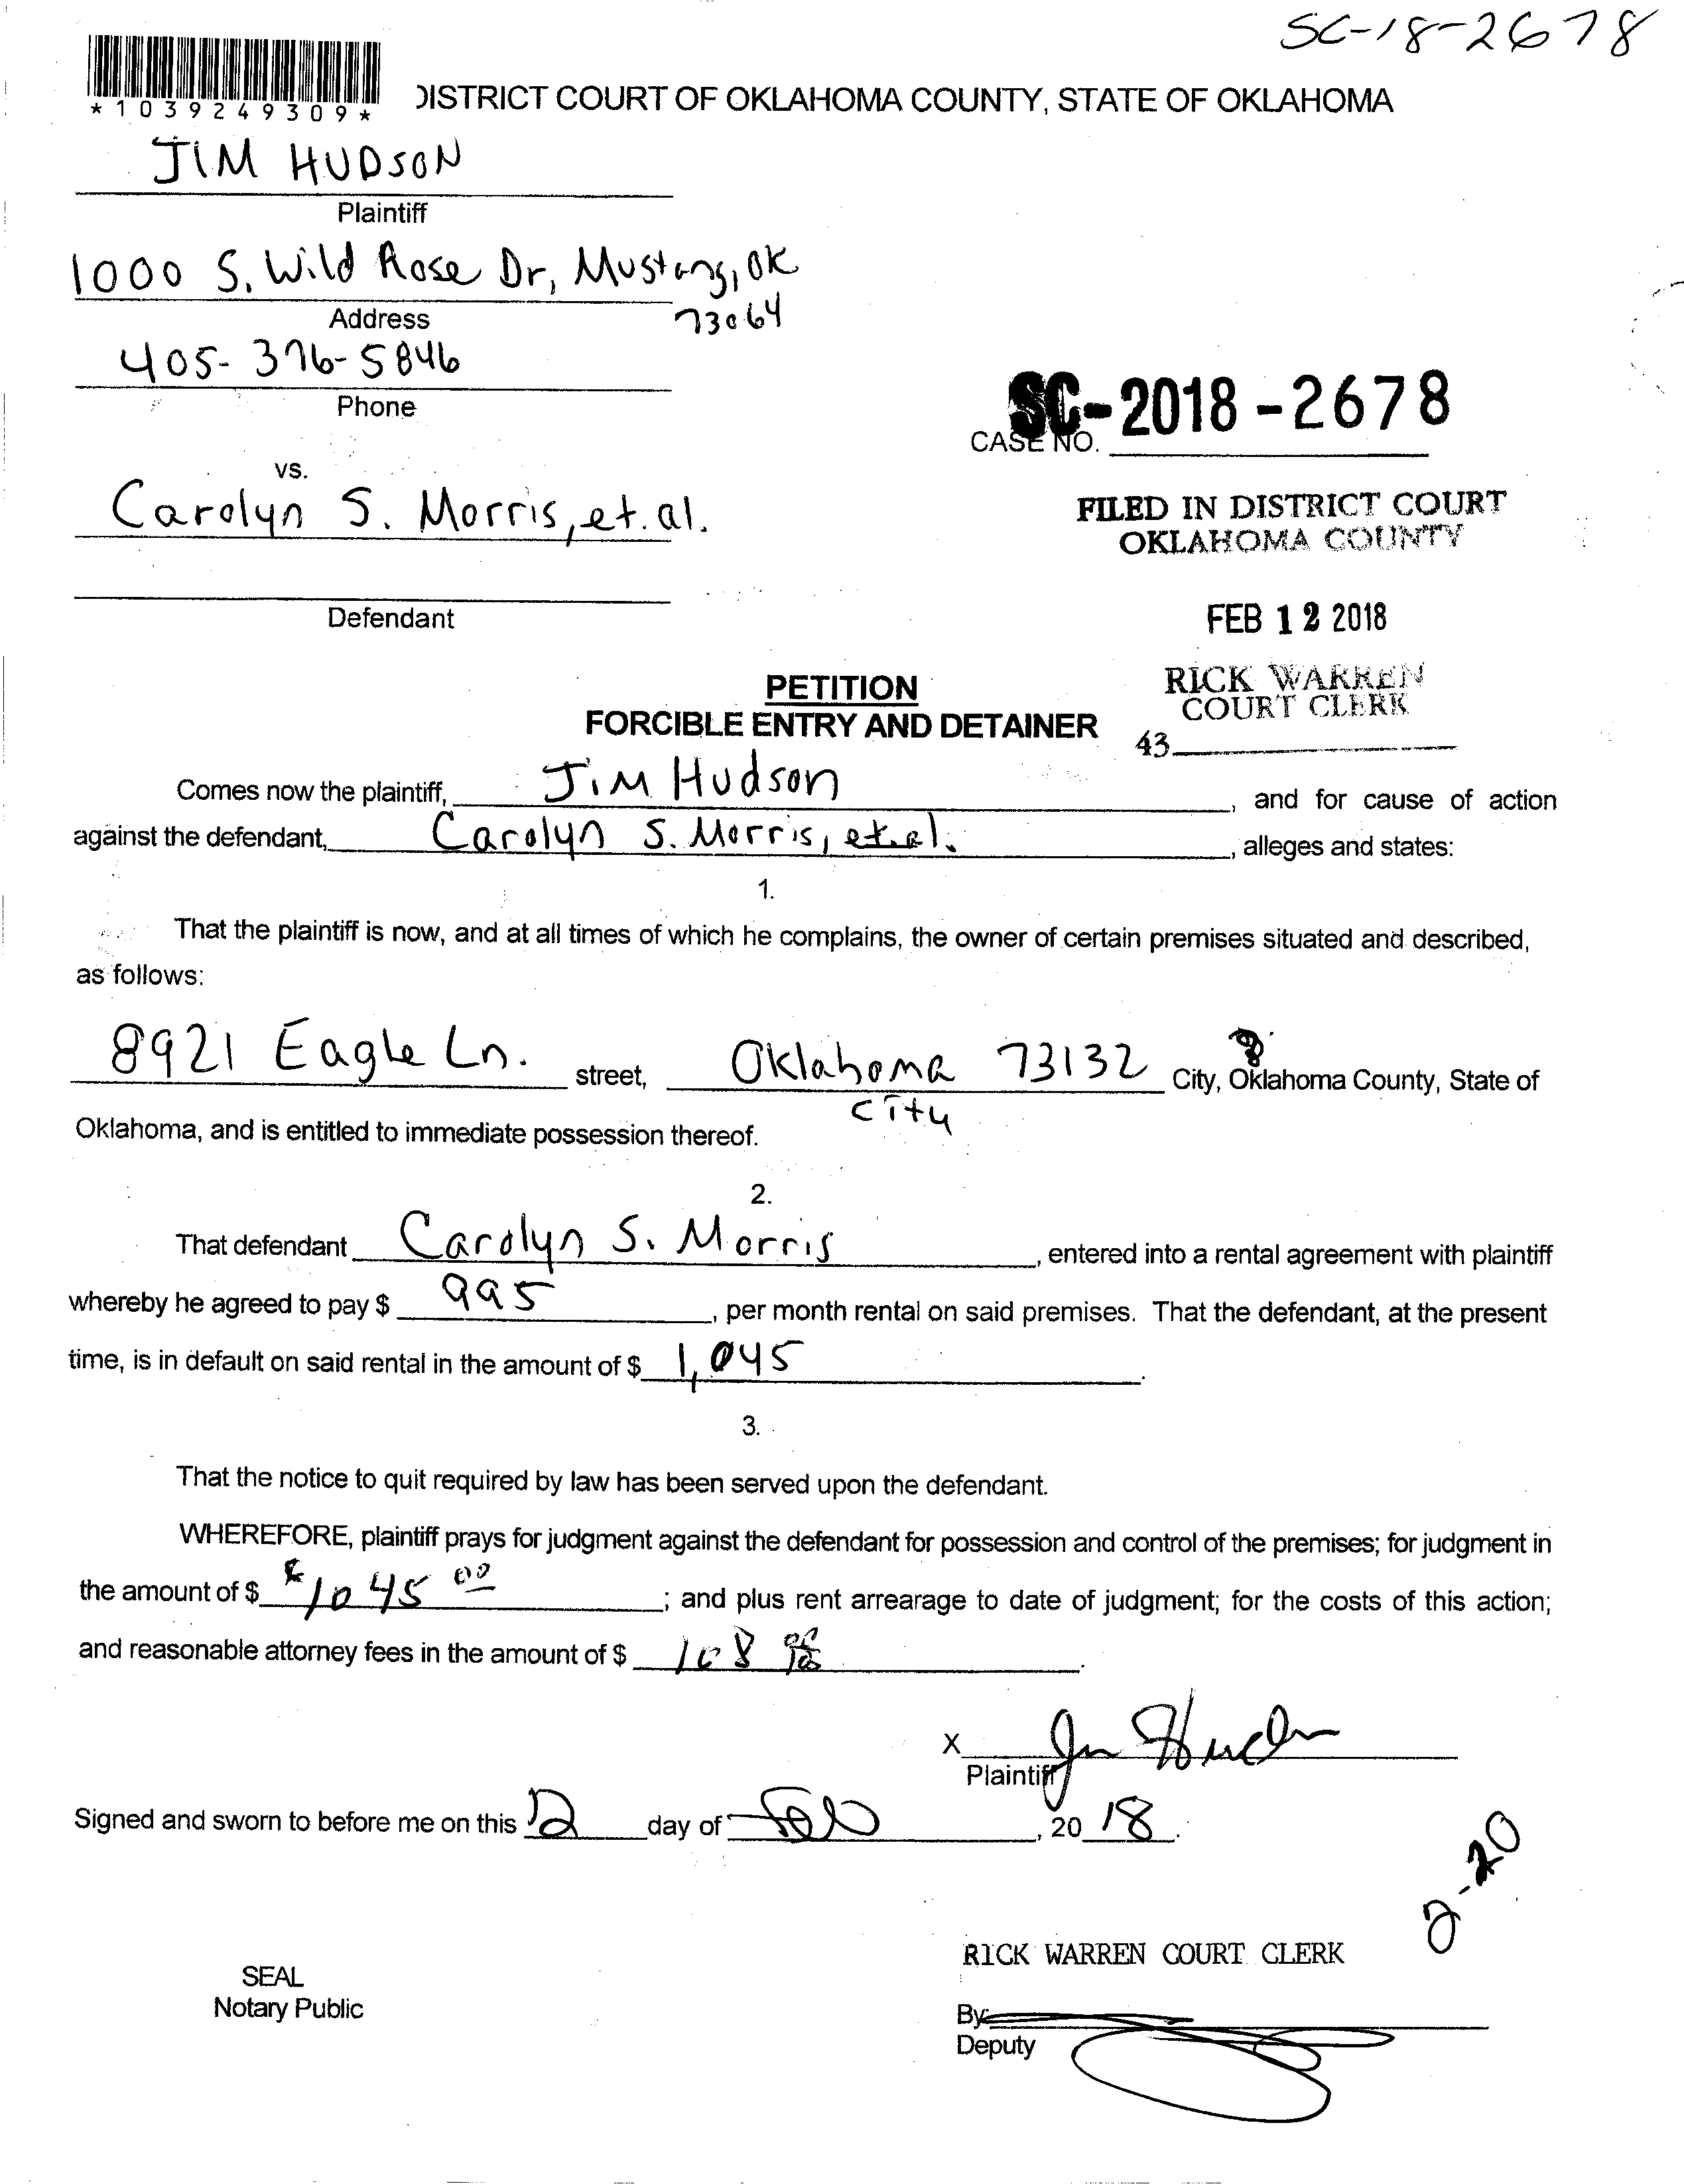 SC-18-2678
*1039249309*
DISTRICT COURT OF OKLAHOMA COUNTY, STATE OF OKLAHOMA
JIM HUDSON
Plaintiff
1000 S. Wild Rose Dr, Mustang, OK
73064
Address
405-376-5846
Phone
SC-2018-2678
CASE NO.
vs.
Carolyn S. Morris, et. al.
Defendant
FILED IN DISTRICT COURT
OKLAHOMA COUNTY
FEB 12 2018
RICK WARREN
COURT CLERK
43
PETITION
FORCIBLE ENTRY AND DETAINER
Comes now the plaintiff, Jim Hudson, and for cause of action
against the defendant, Carolyn S. Morris, et. al., alleges and states:
1.
That the plaintiff is now, and at all times of which he complains, the owner of certain premises situated and described,
as follows:
8921 Eagle Ln. street, Oklahoma 73132 City, Oklahoma County, State of
City
Oklahoma, and is entitled to immediate possession thereof.
2.
That defendant Carolyn S. Morris, entered into a rental agreement with plaintiff
whereby he agreed to pay $ 995, per month rental on said premises. That the defendant, at the present
time, is in default on said rental in the amount of $ 1,045.
3.
That the notice to quit required by law has been served upon the defendant.
WHEREFORE, plaintiff prays for judgment against the defendant for possession and control of the premises; for judgment in
the amount of $ $1045 00; and plus rent arrearage to date of judgment; for the costs of this action;
and reasonable attorney fees in the amount of $ 108.
X Jim Hudson
Plaintiff
Signed and sworn to before me on this 12 day of Feb, 20 18.
2-20
RICK WARREN COURT CLERK
SEAL
Notary Public
By
Deputy